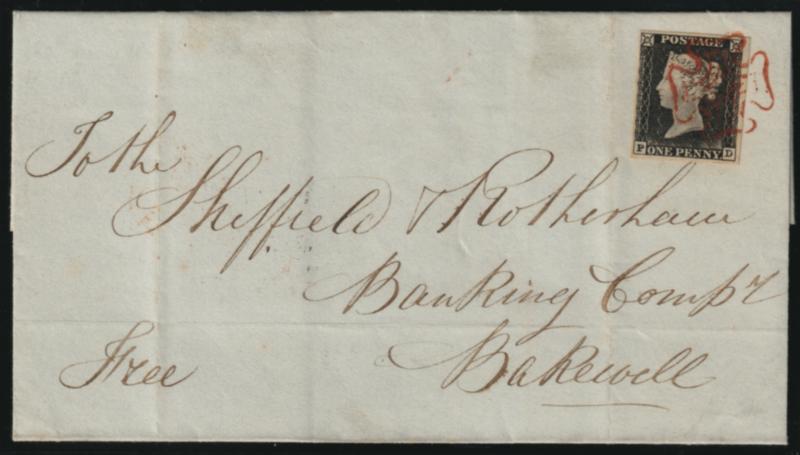 POSTAGE
P ONE PENNY D
To the
Sheffield & Rotherham
Banking Compy
Bakewell
Free